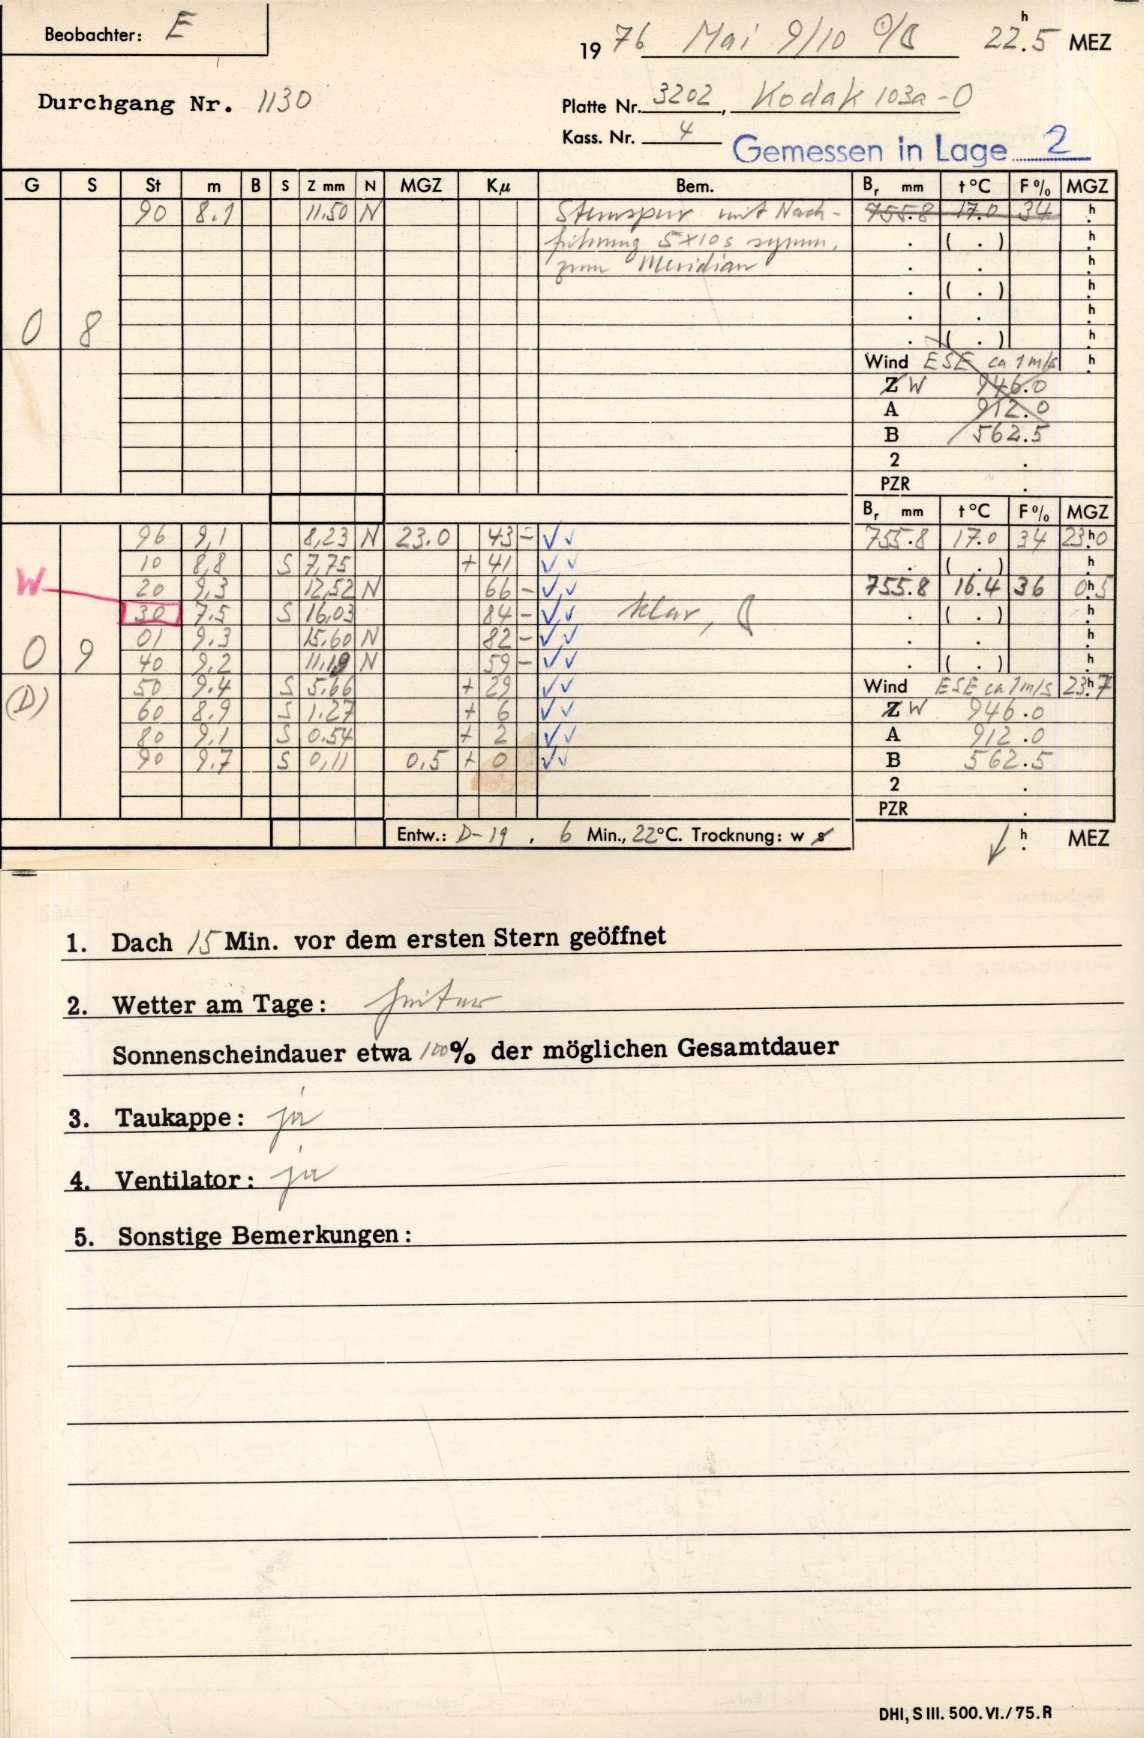 Beobachter: E
1976 Mai 9/10 ☉/☾ 22.5 h MEZ
Durchgang Nr. 1130
Platte Nr. 3202, Kodak 103a-O
Kass. Nr. 4
Gemessen in Lage 2
G S St m B S Z mm N MGZ Kμ Bem. Br mm t °C F % MGZ
90 8.1 11.50 N Sternspur mit Nach- 755.8 17.0 34 . h
führung 5x10s symm. . ( . ) . h
zum Meridian . . . h
. ( . ) . h
. . . h
0 8 . ( . ) . h
Wind ESE ca 1 m/s . h
Z W 946.0
A 912.0
B 562.5
2 .
PZR .
Br mm t °C F % MGZ
96 9,1 8,23 N 23.0 43 - ✓✓ 755.8 17.0 34 23h0
10 8,8 S 7,75 + 41 ✓✓ . ( . ) . h
W 20 9,3 12,52 N 66 - ✓✓ 755.8 16.4 36 0h5
30 7.5 S 16,03 84 - ✓✓ klar, ☾ . ( . ) . h
01 9.3 15.60 N 82 - ✓✓ . . . h
0 9 40 9.2 11,19 N 59 - ✓✓ . ( . ) . h
(D) 50 9.4 S 5.66 + 29 ✓✓ Wind ESE ca 1 m/s 23h7
60 8.9 S 1.27 + 6 ✓✓ Z W 946.0
80 9,1 S 0.54 + 2 ✓✓ A 912.0
90 9.7 S 0,11 0,5 + 0 ✓✓ B 562.5
2 .
PZR .
Entw.: D-19, 6 Min., 22°C. Trocknung: w s . h MEZ
1. Dach 15 Min. vor dem ersten Stern geöffnet
2. Wetter am Tage: heiter
Sonnenscheindauer etwa 100% der möglichen Gesamtdauer
3. Taukappe: ja
4. Ventilator: ja
5. Sonstige Bemerkungen:
DHI, S III. 500. VI./75. R